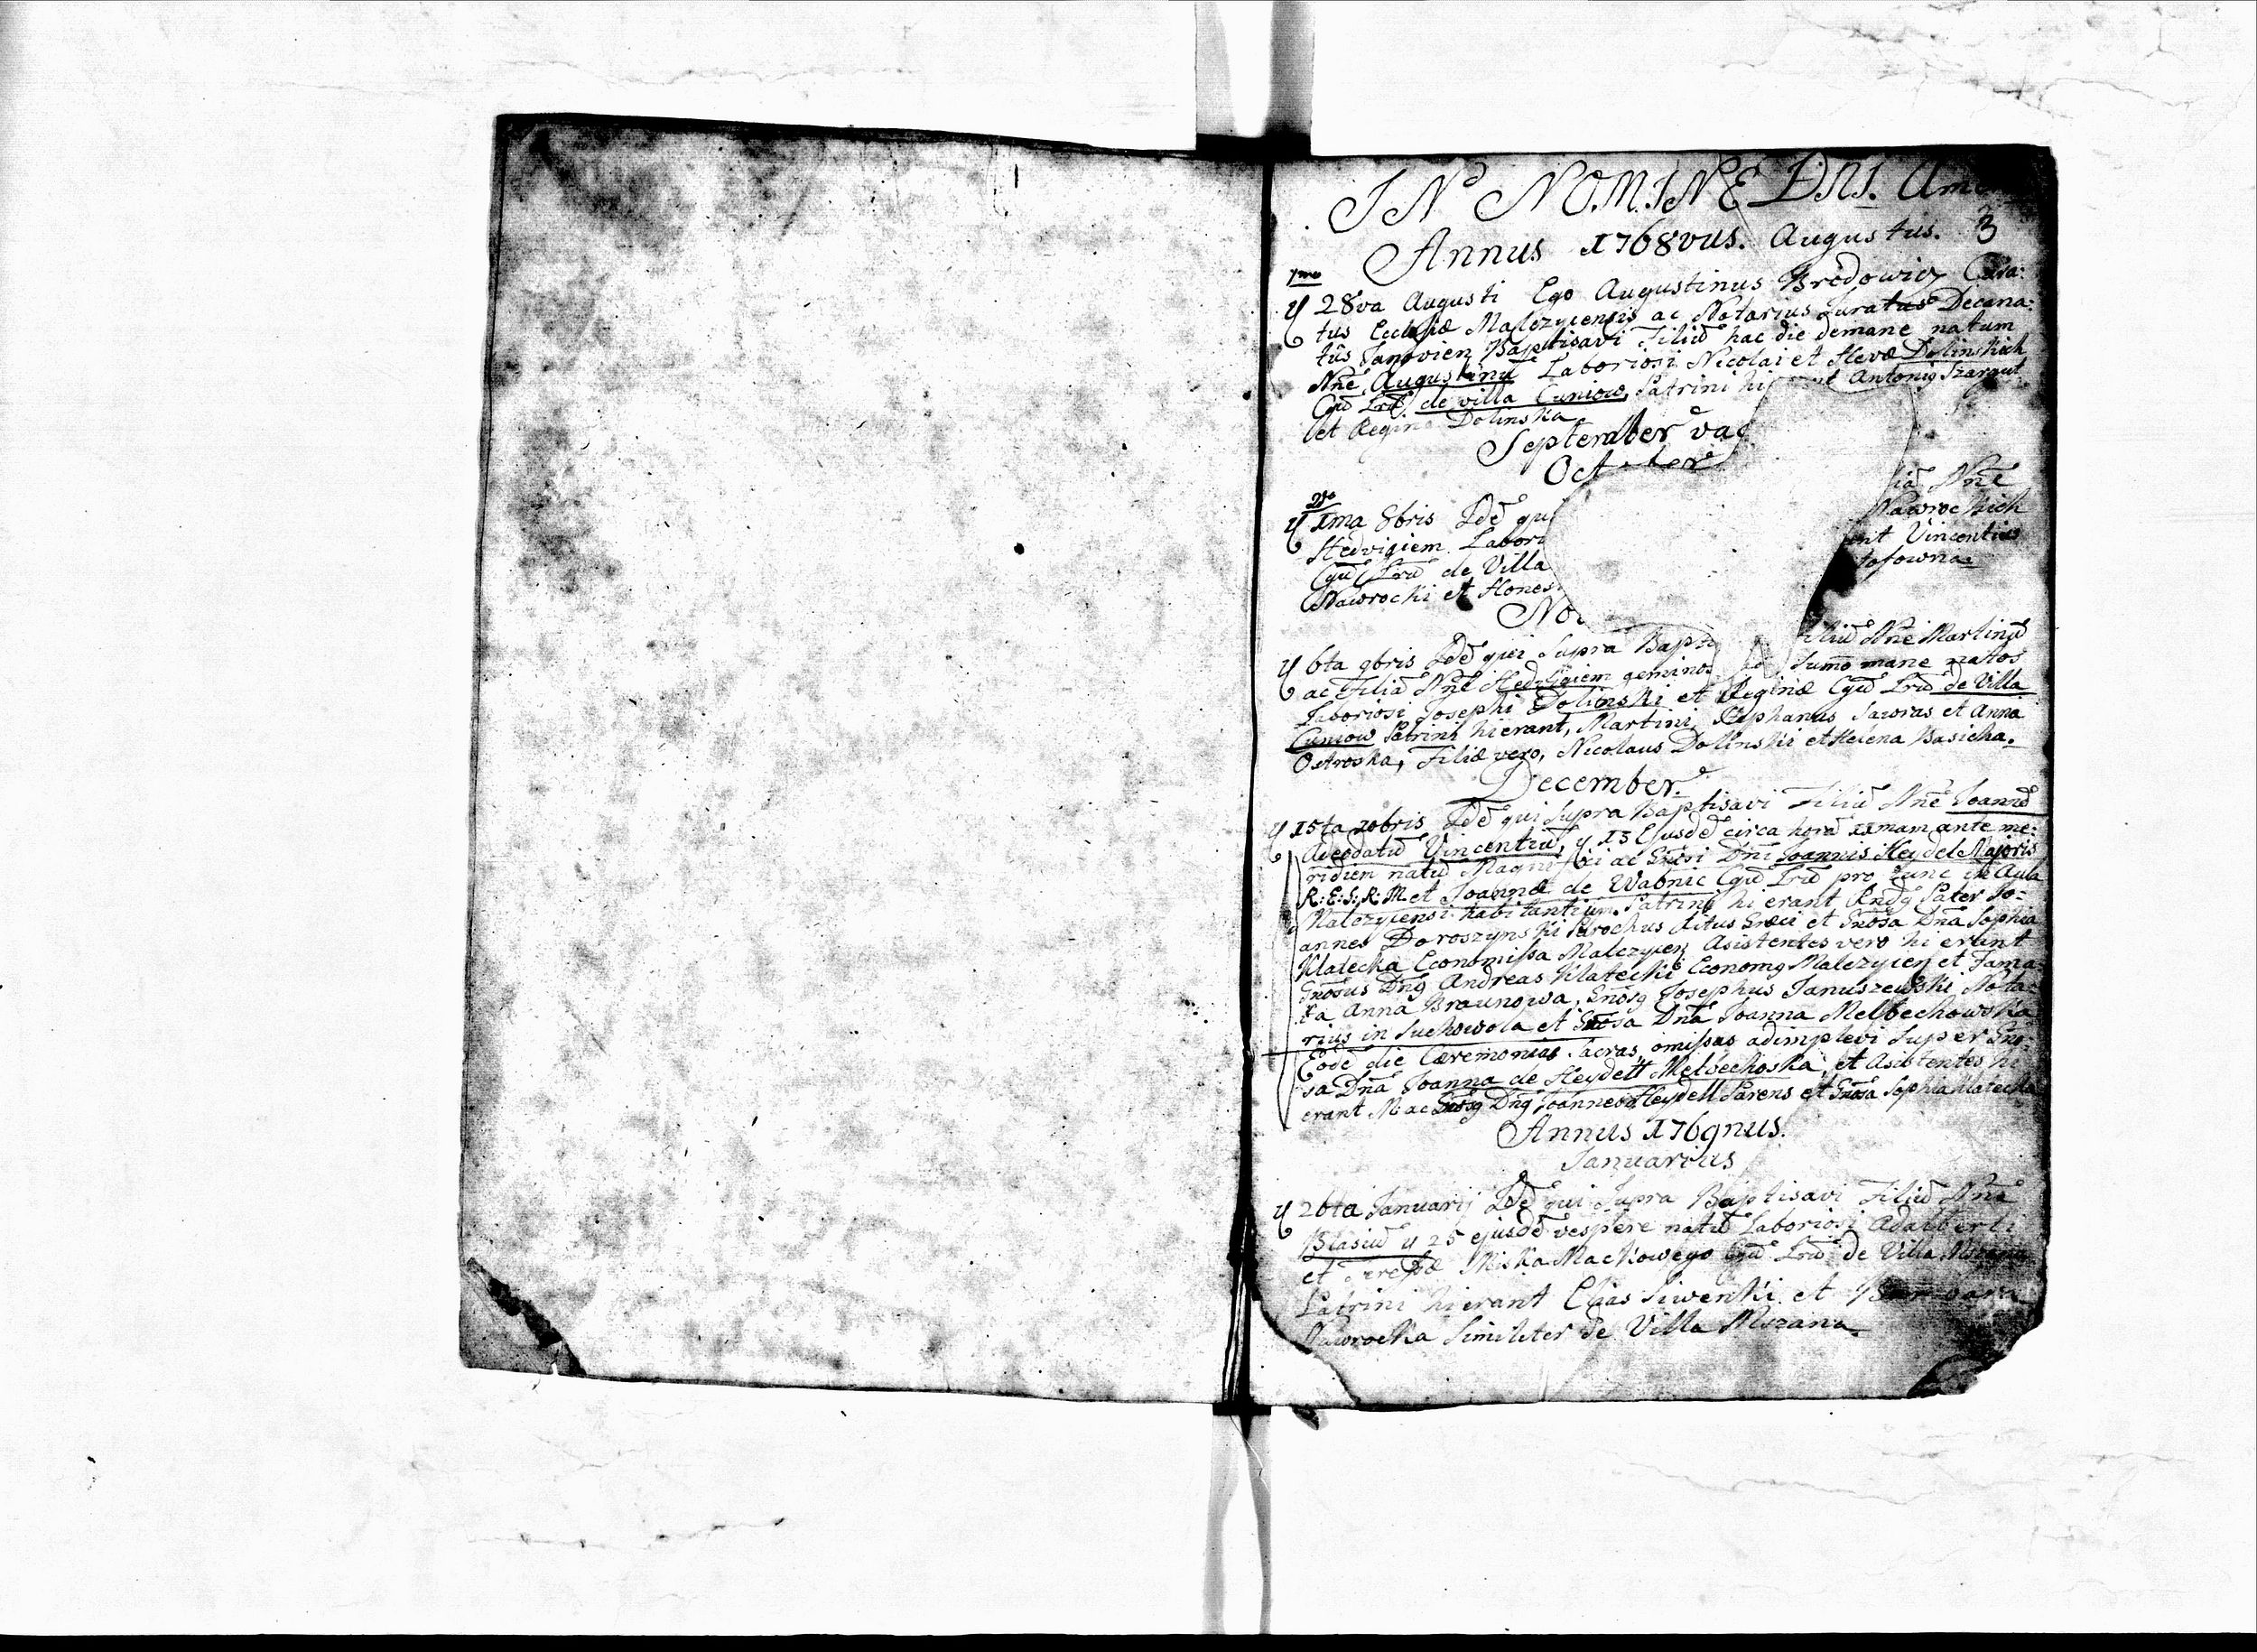 IN NOMINE DNI. Ame
3
Annus 1768vus. Augustus.
1mo
28va Augusti Ego Augustinus Bredowicz Cura:
tus Ecclesiæ Malczycensis ac Notarius Juratus Decana:
tûs Janovien Baptisavi Filiū hac die demane natum
Nñe Augustinū Laboriosi Nicolai et Hevæ Dolinskich
Cgū Lrū de villa Cuniow, Patrini hi Antonig Szargut
et Regina Dolinska
September vac
October
2do
1ma 8bris Idē qui liā Nñe
Hedvigiem Labori Nawrockich
Cgū Lrū de Villa ant Vincentius
Nawrocki et Hones tofowna.
No
6ta 9bris Idē qui Supra Bapti iliū Nñe Martinū
ac Filiā Nñe Hedvigiem geminos Sumo mane natos
Laboriosi Josephi Dolinski et Reginæ Cgū Lrū de Villa
Cuniow Patrini hi erant, Martini, Stephanus Jaworas et Anna
Ostroska, Filiæ vero, Nicolaus Dolinski et Helena Basicha.
December.
15ta 10bris Idē qui Supra Baptisavi Filiū Nñe Joannē
Adeodatū Vincentiū, 13 Ejusdē circa horā 11mam ante me:
ridiem natū Magnifici ac Gnosi Dni Joannis Heydel Majoris
R: E: S: R: M et Joannæ de Wabnic Cgū Lrū pro tunc in Aula
Malczycensi habitantium. Patrini hi erant Rndg Pater Jo:
annes Doroszynski Parochus Ritus Græci et Gnosa Dna Sophia
Klatecka Economissa Malczycen, Asistentes vero hi erant
Gnosus Dng Andreas Klatecki Economg Malczycen et Fama:
ta Anna Braunowa, Gnosg Josephus Januszewski Nota:
rius in Suchowola et Gnosa Dna Joanna Melbechowska
Eodē die Cæremonias Sacras, omissas adimplevi Super Gno:
sa Dna Joanna de Heydell Melbechoska, et Asistentes hi
erant M ac Gnosg Dng Joannes Heydell Parens et Gnosa Sophia Klatecka
Annus 1769nus.
Januarius
26ta Januarij Idē qui Supra Baptisavi Filiū Nñe
Blasiū 25 ejusdē vespere natū Laboriosi Adalberti
et Teresæ Miska Mackowego Cgū Lrū de Villa Mszana
Patrini hi erant Elias Siwenki et Barbara
Nawrocka Similiter de Villa Mszana